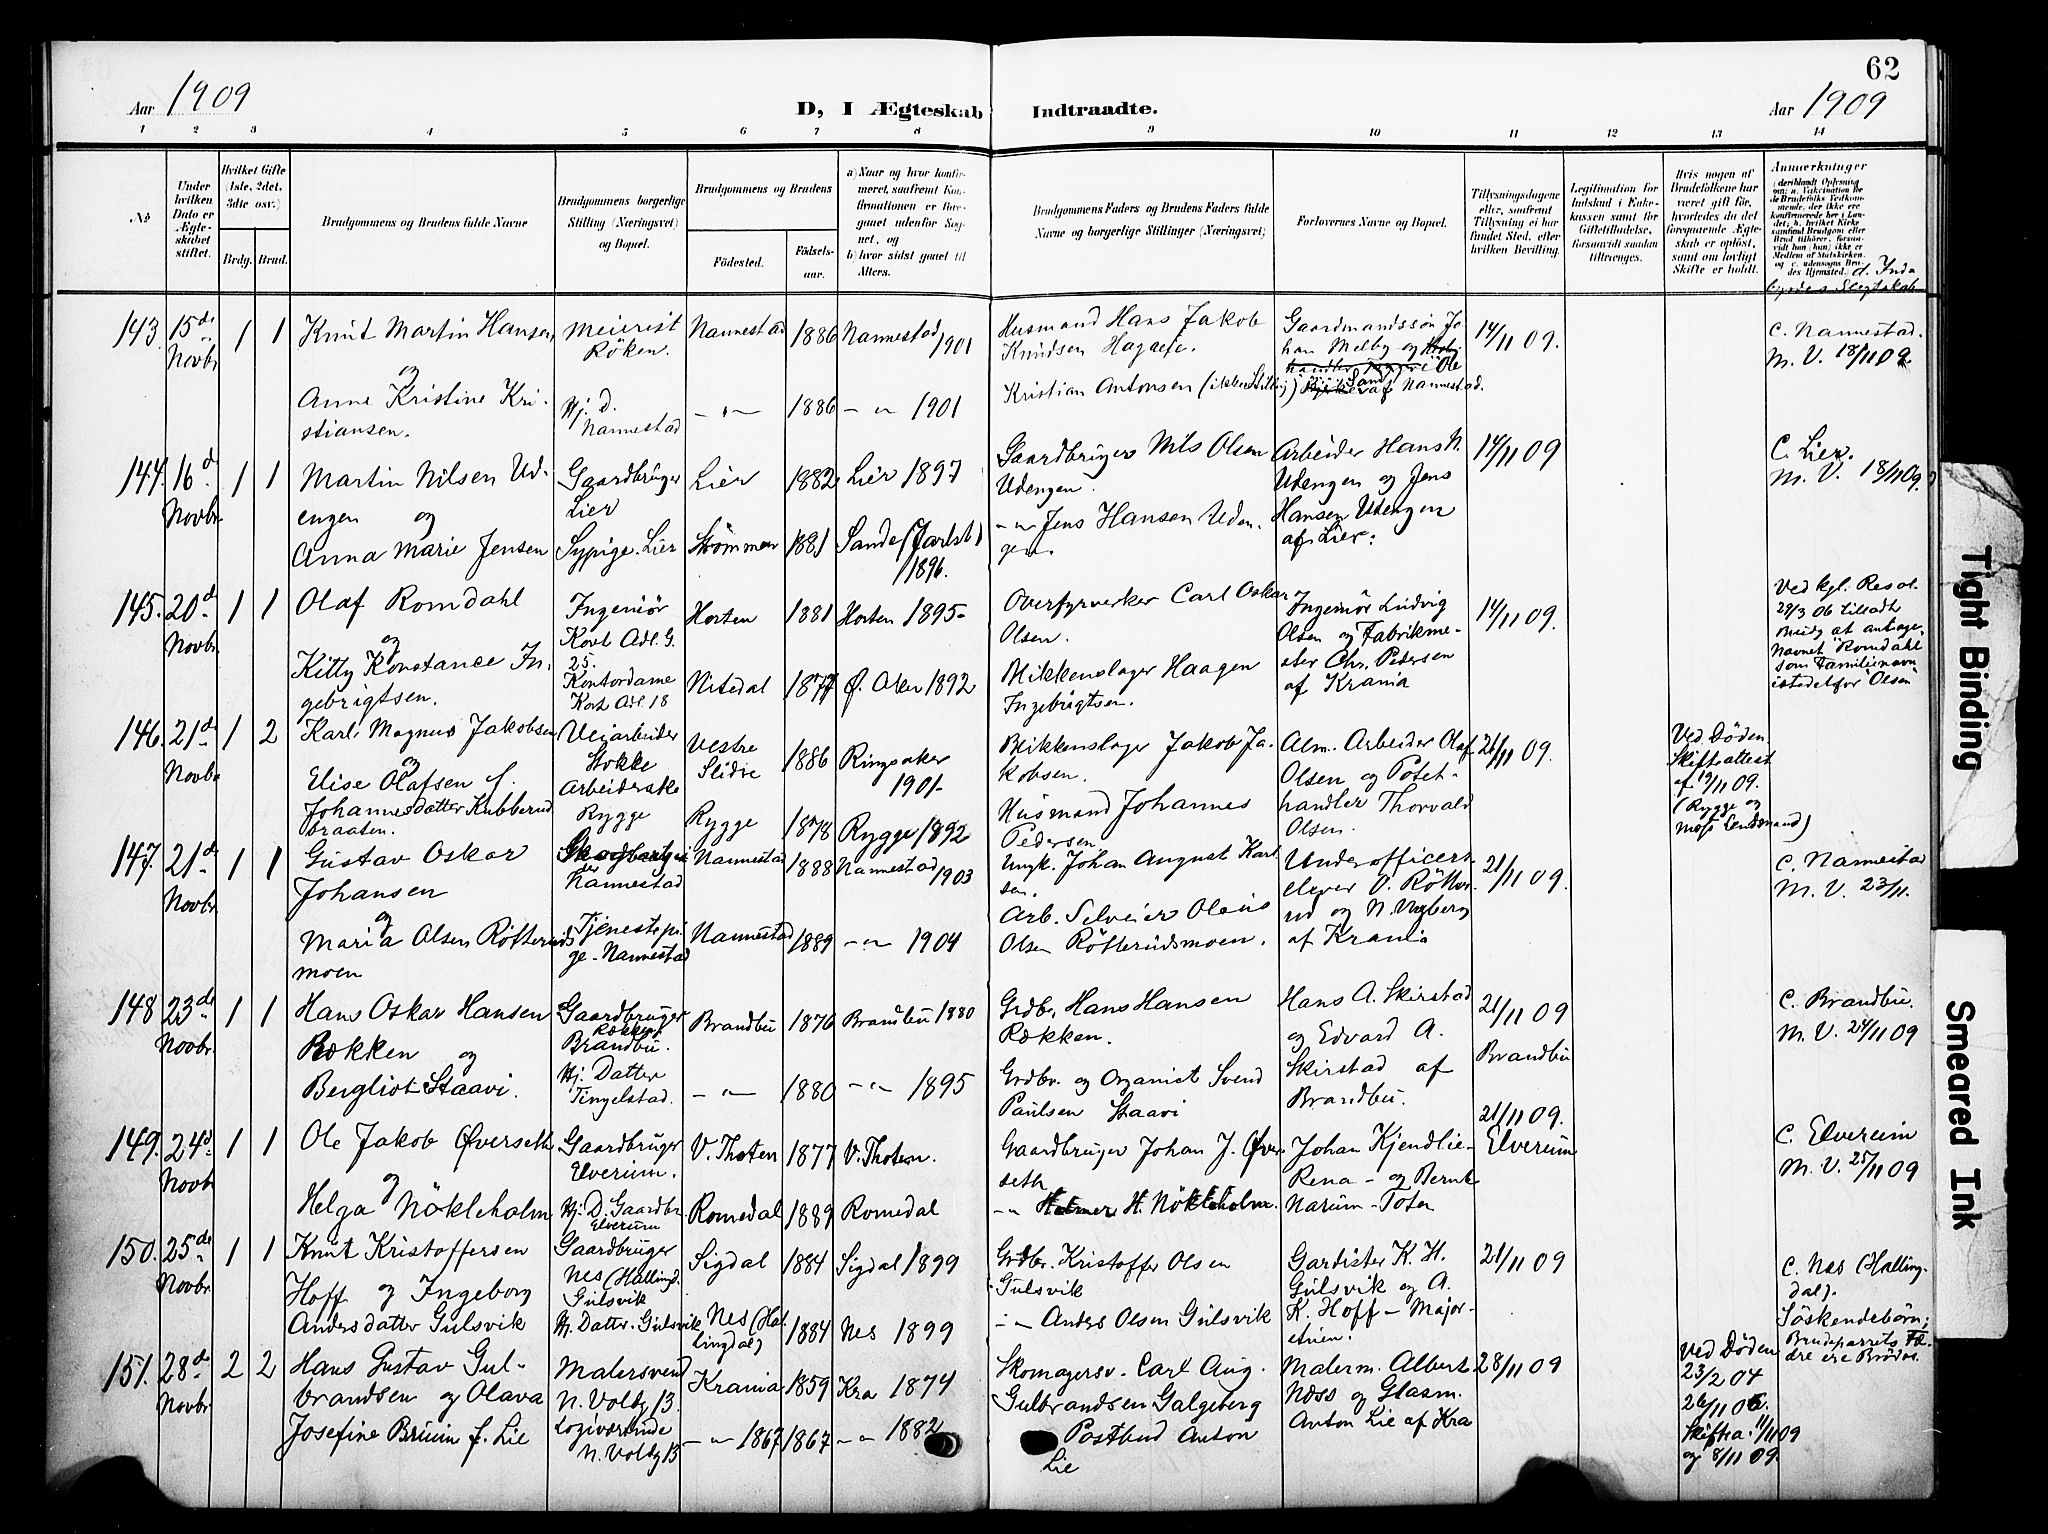 62
Aar 1909
D, I Ægteskab Indtraadte.
Aar 1909
1 2 3 4 5 6 7 8 9 10 11 12 13 14
No
Under hvilken Dato er Ægteskabet stiftet.
Hvilket Gifte (1ste, 2det, 3die osv.)
Brdg. Brud.
Brudgommens og Brudens fulde Navne
Brudgommens borgerlige Stilling (Næringsvei) og Bopæl.
Brudgommens og Brudens
Fødested.
Fødselsaar.
a) Naar og hvor konfirmeret, saafremt Konfirmationen er foregaaet udenfor Sognet, og
b) hvor sidst gaaet til Alters.
Brudgommens Faders og Brudens Faders fulde Navne og borgerlige Stillinger (Næringsvei)
Forlovernes Navne og Bopæl.
Tillysningsdagene eller, saafremt Tillysning ei har fundet Sted, efter hvilken Bevilling.
Legitimation for Indskud i Enkekassen samt for Giftetilladelse, forsaavidt saadan tiltrænges.
Hvis nogen af Brudefolkene har været gift før, hvorledes da det foregaaende Ægteskab er opløst, samt om lovligt Skifte er holdt.
Anmerkninger
143. 15de Novbr 1 1
Knut Martin Hansen
og
Anne Kristine Kri-
stiansen.
Meierist
Röken.
Hj. D.
Nannestad
Nannestad 1886 Nannestad 1901
— " — 1886 — " — 1901
Husmand Hans Jakob
Knudsen Hagaeie.
Kristian Antonsen (ikke Stilling)
Gaardmandssøn Jo
han Melby og
Ole
af Nannestad.
14/11 09.
C. Nannestad.
M. V. 18/11 09.
144. 16d Novbr. 1 1
Martin Nilsen Ud-
engen og
Anna Marie Jensen
Gaardbruger
Lier
Sypige. Lier
Lier 1882 Lier 1897
Strömmen 1881 Sande (Jarlsb.) 1896.
Gaardbruger Nils Olsen
Udengen.
— " — Jens Hansen Uden-
gen.
Arbeider Hans N.
Udengen og Jens
Hansen Udengen
af Lier.
14/11 09
C. Lier.
M. V. 18/11 09.
145. 20d Novbr 1 1
Olaf Romdahl
og
Kitty Konstance In-
gebrigtsen.
Ingeniör
Kort Adl. G.
25.
Kontordame
Kort Adl. 18
Horten 1881 Horten 1895-
Nitedal 1877 Ø. Aker 1892
Overfyrverker Carl Oskar
Olsen.
Blikkenslager Haagen
Ingebrigtsen.
Ingeniör Ludvig
Olsen og Fabrikme-
ster Chr. Pedersen
af Krania
14/11 09.
Ved kgl. Resol.
29/3 06 tilladt
Brudg at antage
Navnet "Romdahl
som Familienavn
istedetfor "Olsen"
146. 21de Novbr. 1 2
Karl Magnus Jakobsen
og
Elise Olafsen f.
Johannesdatter Kubberud
braaten.
Veiarbeider
Stokke
Arbeiderske
Rygge
Vestre
Slidre 1886 Ringsaker
1901-
Rygge 1878 Rygge 1892
Blikkenslager Jakob Ja-
kobsen.
Husmand Johannes
Pedersen
Alm. Arbeider Olaf
Olsen og Potet-
handler Thorvald
Olsen.
21/11 09.
Ved Döden.
Skifteattest
af 19/11 09.
(Rygge og
Moss Lendsmand)
147. 21de Novbr. 1 1
Gustav Oskar
Johansen
og
Maria Olsen Rötteruds
moen
Nannestad
Tjenestepi-
ge - Nannestad
Nannestad 1888 Nannestad 1903
Nannestad 1889 — " — 1904
Ungk. Johan August Karl
sen.
Arb. Selveier Olaus
Olsen Rötterudsmoen.
Underofficers-
elever O. Rötter-
ud og N. Nyberg
af Krania
21/11 09.
C. Nannestad
M. V. 23/11.
148 23de Novbr. 1 1
Hans Oskar Hansen
Rækken og
Bergliot Staavi.
Gaardbruger
Rækken
Brandbu.
Hj. Datter
Tingelstad.
Brandbu 1876 Brandbu 1880
— " — 1880 — " — 1895
Grdbr. Hans Hansen
Rækken.
Grdbr. og Organist Svend
Paulsen Staavi
Hans A. Skirstad
og Edvard A.
Skirstad af
Brandbu.
21/11 09
Brandbu
C. Brandbu.
M. V. 24/11 09
149. 24d. Novbr 1 1
Ole Jakob Øverseth
og
Helga Nökleholm
Gaardbruger
Elverum.
Hj. D. Gaardbr.
Elverum
V. Thoten 1877 V. Thoten.
Romedal 1889 Romedal
Gaardbruger Johan J. Øver-
seth
— " — H. Nökleholm.
Johan Kjendlie-
Rena - og Bernt
Narum - Toten
21/11 09.
Elverum
C. Elverum
M. V. 25/11 09
150. 25de Novbr. 1 1
Knut Kristoffersen
Hoff og Ingeborg
Andersdatter Gulsvik
Gaardbruger
Nes (Hallingd.
Gulsvik
Hj. Datter. Gulsvik
Sigdal 1884 Sigdal 1899
Nes (Hal-
lingdal) 1884 Nes 1899
Grdbr. Kristoffer Olsen
Gulsvik
— " — Anders Olsen Gulsvik
Gardister K. H.
Gulsvik og A.
K. Hoff - Major-
stuen.
21/11 09
C. Nes (Halling-
dal).
Söskendebörn;
Brudeparrets Fæ-
dre ere Brödre.
151. 28de Novbr. 2 2
Hans Gustav Gul-
brandsen og Olava
Josefine Bruun f. Lie
Malersvend
N. Voldg 13.
Logiværtinde
N. Voldg 13
Krania 1859 Kra 1874
— " — 1867 1867 — " — 1882
Skomagersv. Carl Aug.
Gulbrandsen Galgeberg
Postbud Anton
Lie
Malerm. Albert
Næss og Glasm.
Anton Lie af Kra
28/11 09
Ved Döden
23/2 04
Skiftea. 1/11 09
og 8/11 09.
Tight Binding
Smeared Ink